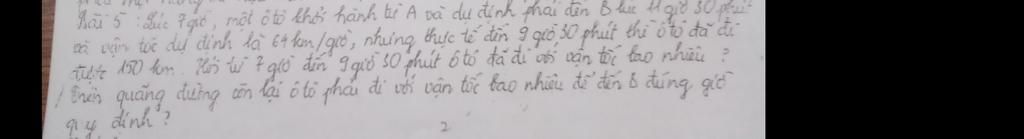 Bài 5: Lúc 7 giờ, một ô tô khởi hành từ A và dự định phải đến B lúc 11 giờ 30 phút
vận tốc dự định là 64 km/giờ, nhưng thực tế đến 9 giờ 30 phút thì ô tô đã đi
được 150 km. Hỏi từ 7 giờ đến 9 giờ 30 phút ô tô đã đi với vận tốc bao nhiêu?
Trên quãng đường còn lại ô tô phải đi với vận tốc bao nhiêu để đến B đúng giờ
quy định?
2